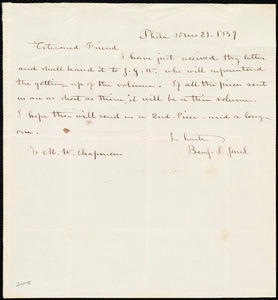 Phila 10 mo 21. 1839
Esteemed Friend
I have just received thy letter
and shall hand it to J. G. W. who will superintend
the getting up of the volume. If all the pieces sent
in are as short as thine, it'll be a thin volume.
I hope thee will send us a 2nd Piece - and a long
one.
In haste
To M. W. Chapman
Benj. S. Jones